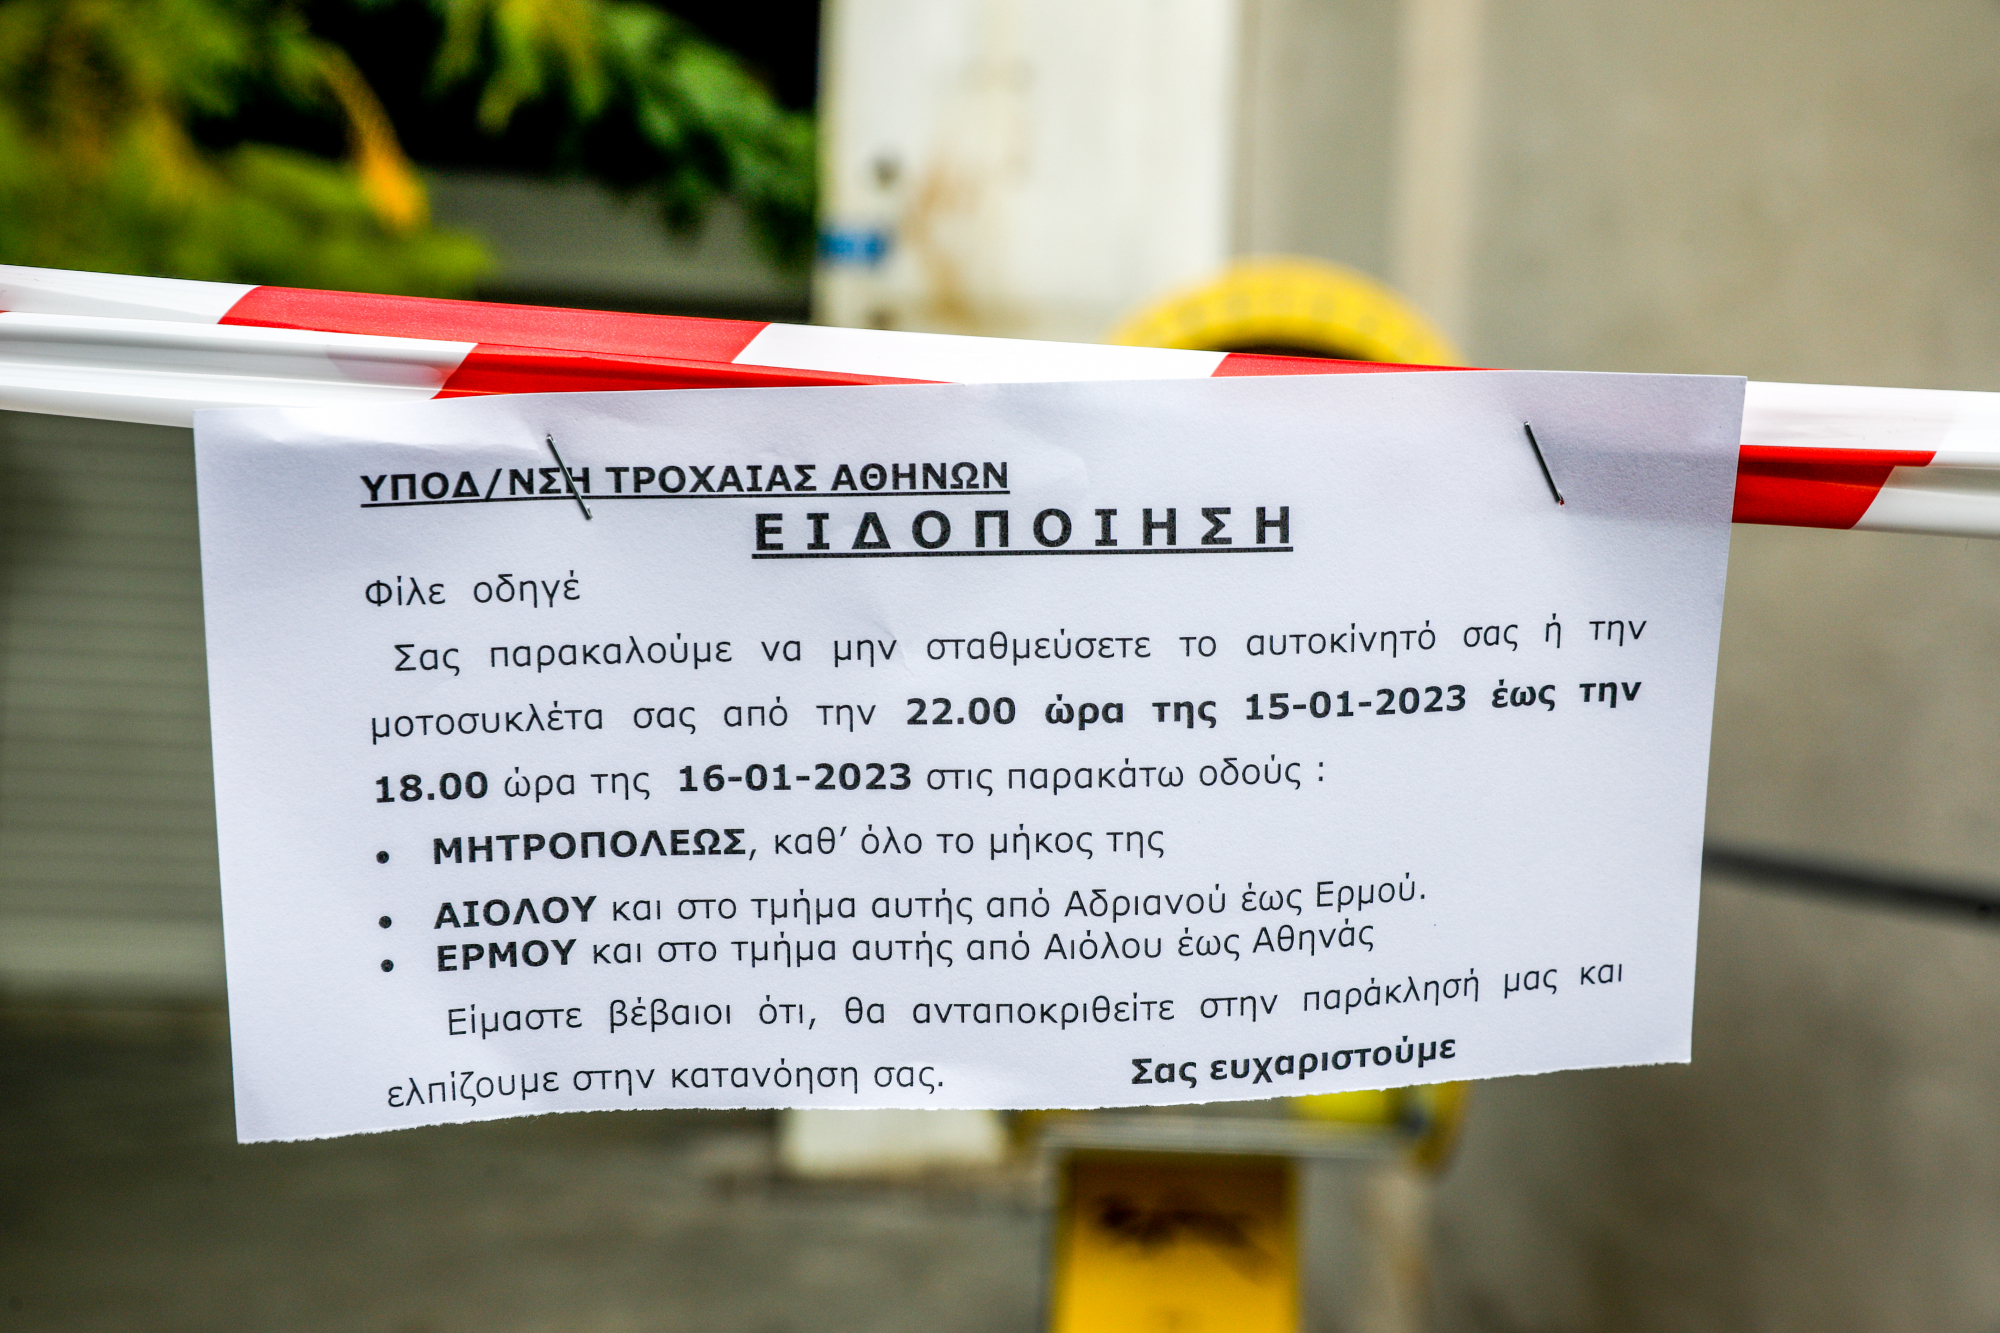 ΥΠΟΔ/ΝΣΗ ΤΡΟΧΑΙΑΣ ΑΘΗΝΩΝ
ΕΙΔΟΠΟΙΗΣΗ
Φίλε οδηγέ
Σας παρακαλούμε να μην σταθμεύσετε το αυτοκίνητό σας ή την
μοτοσυκλέτα σας από την 22.00 ώρα της 15-01-2023 έως την
18.00 ώρα της 16-01-2023 στις παρακάτω οδούς :
• ΜΗΤΡΟΠΟΛΕΩΣ, καθ’ όλο το μήκος της
• ΑΙΟΛΟΥ και στο τμήμα αυτής από Αδριανού έως Ερμού.
• ΕΡΜΟΥ και στο τμήμα αυτής από Αιόλου έως Αθηνάς
Είμαστε βέβαιοι ότι, θα ανταποκριθείτε στην παράκλησή μας και
ελπίζουμε στην κατανόηση σας. Σας ευχαριστούμε